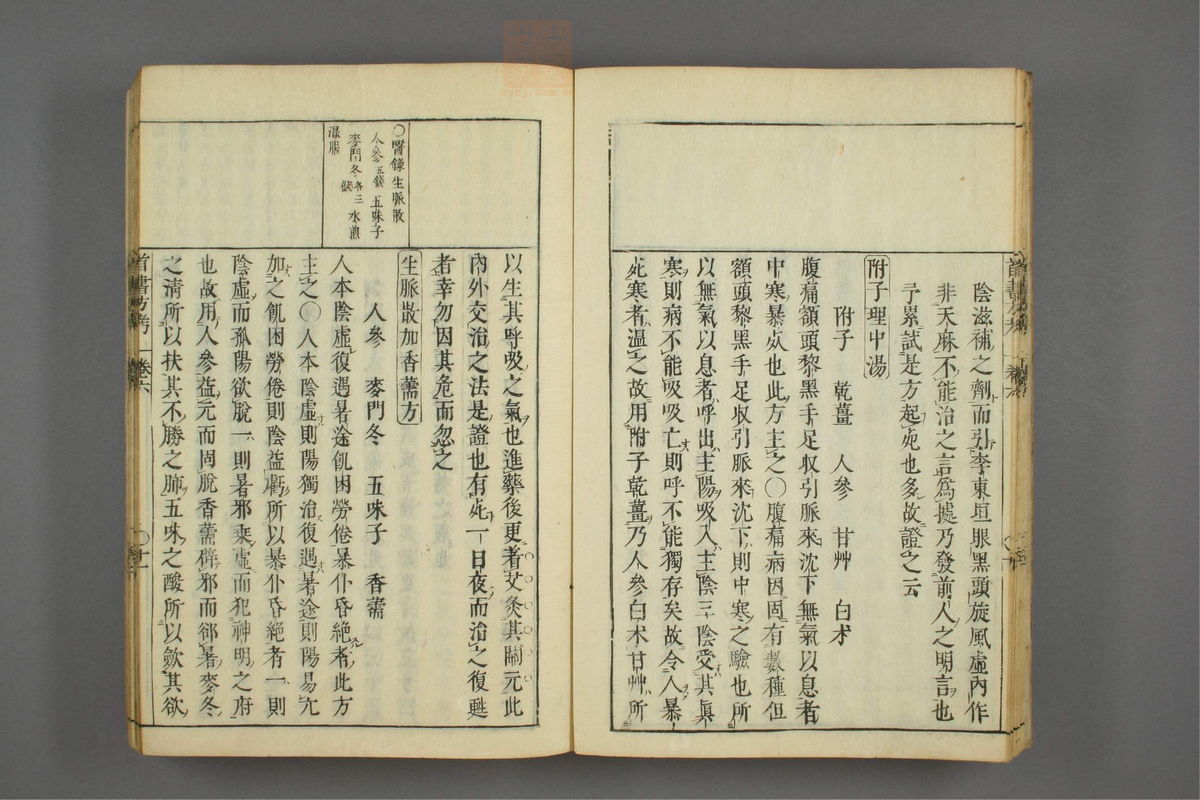 陰滋補之劑而引李東垣眼黑頭旋風虛內作
非天麻不能治之言為據乃發前人之明言也
予累試是方起死也多故證之云
附子理中湯
附子 乾薑 人參 甘艸 白朮
腹痛額頭黎黑手足収引脈來沈下無氣以息者
中寒暴死也此方主之〇腹痛病因固有數種但
額頭黎黑手足収引脈來沈下則中寒之驗也所
以無氣以息者呼出主陽吸入主陰三陰受其真
寒則病不能吸吸亡則呼不能獨存矣故令人暴
死寒者溫之故用附子乾薑乃人參白朮甘艸所
以生其呼吸之氣也進藥後更者艾灸其關元此
內外交治之法是證也有死一日夜而治之復甦
者幸勿因其危而忽之
生脈散加香薷方
人參 麥門冬 五味子 香薷
人本陰虛復遇暑途飢困勞倦暴仆昏絕者此方
主之〇人本陰虛則陽獨治復遇暑途則陽易亢
加之飢困勞倦則陰益虧所以暴仆昏絕者一則
陰虛而孤陽欲脫一則暑邪乘虛而犯神明之府
也故用人參益元而固脫香薷辟邪而郤暑麥冬
之清所以扶其不勝之肺五味之酸所以歛其欲
〇醫錄生脈散
人參五錢 五味子
麥門冬各三錢 水煎
溫服
首書方考 卷六